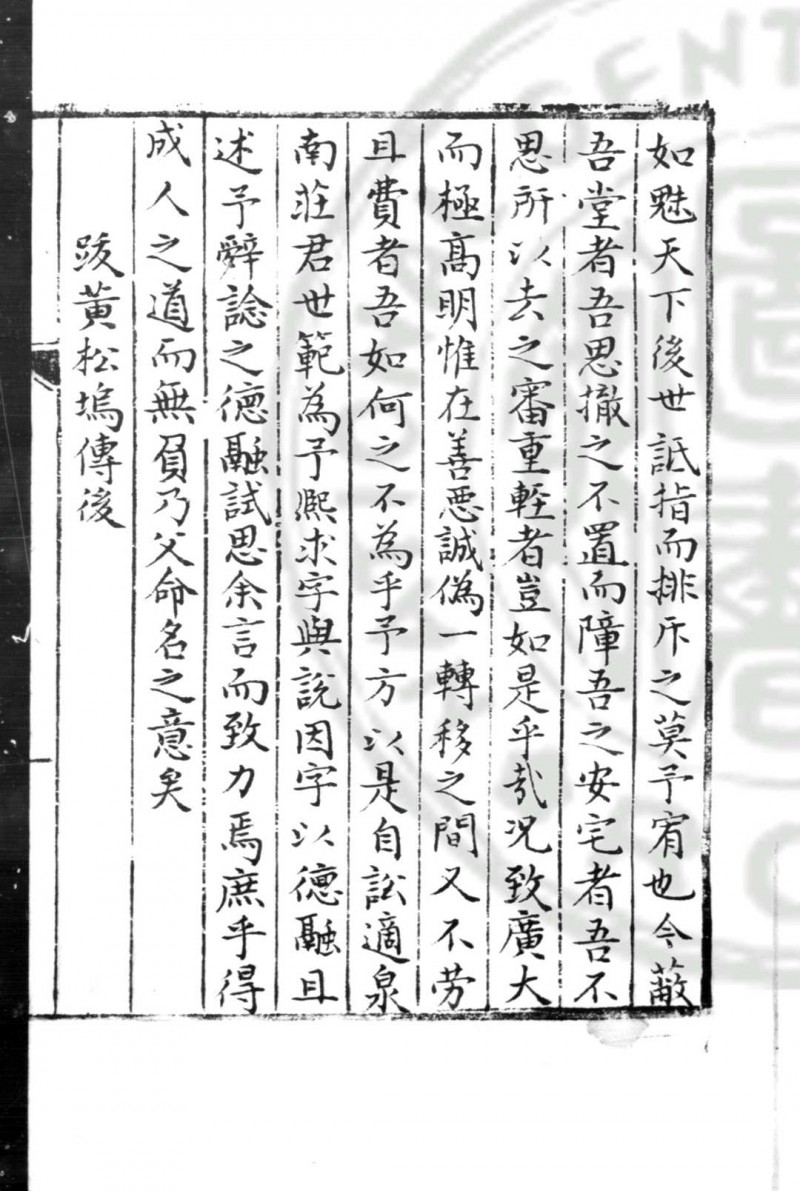 如魅天下後世詆指而排斥之莫予宥也今蔽
吾堂者吾思撤之不置而障吾之安宅者吾不
思所以去之審重輕者豈如是乎哉况致廣大
而極高明惟在善惡誠偽一轉移之間又不劳
且費者吾如何之不為乎予方以是自訟適泉
南莊君世範為子熈求字與說因字以德融且
述予辭諗之德融試思余言而致力焉庶乎得
成人之道而無負乃父命名之意矣
跋黃松塢傳後